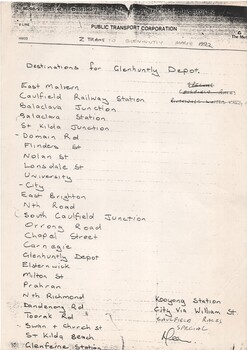 PUBLIC TRANSPORT CORPORATION
The Met
Z TRAMS 1992
Destinations for Glenhuntly Depot.
East Malvern
Caulfield Railway Station
Balaclava Junction
Balaclava Station
St Kilda Junction
- Domain Rd
Flinders St
Nolan St
Lonsdale St
University
- City
East Brighton
Nth Road
South Caulfield Junction
Orrong Road
Chapel Street
Carnegie
Glenhuntly Depot
Elsternwick
Milton St
Prahran
Nth Richmond
Kooyong Station
Dandenong Rd
City Via William St
Toorak Rd
CAULFIELD RACES
SPECIAL
- Swan & Church St
St Kilda Beach
Glenferrie Station